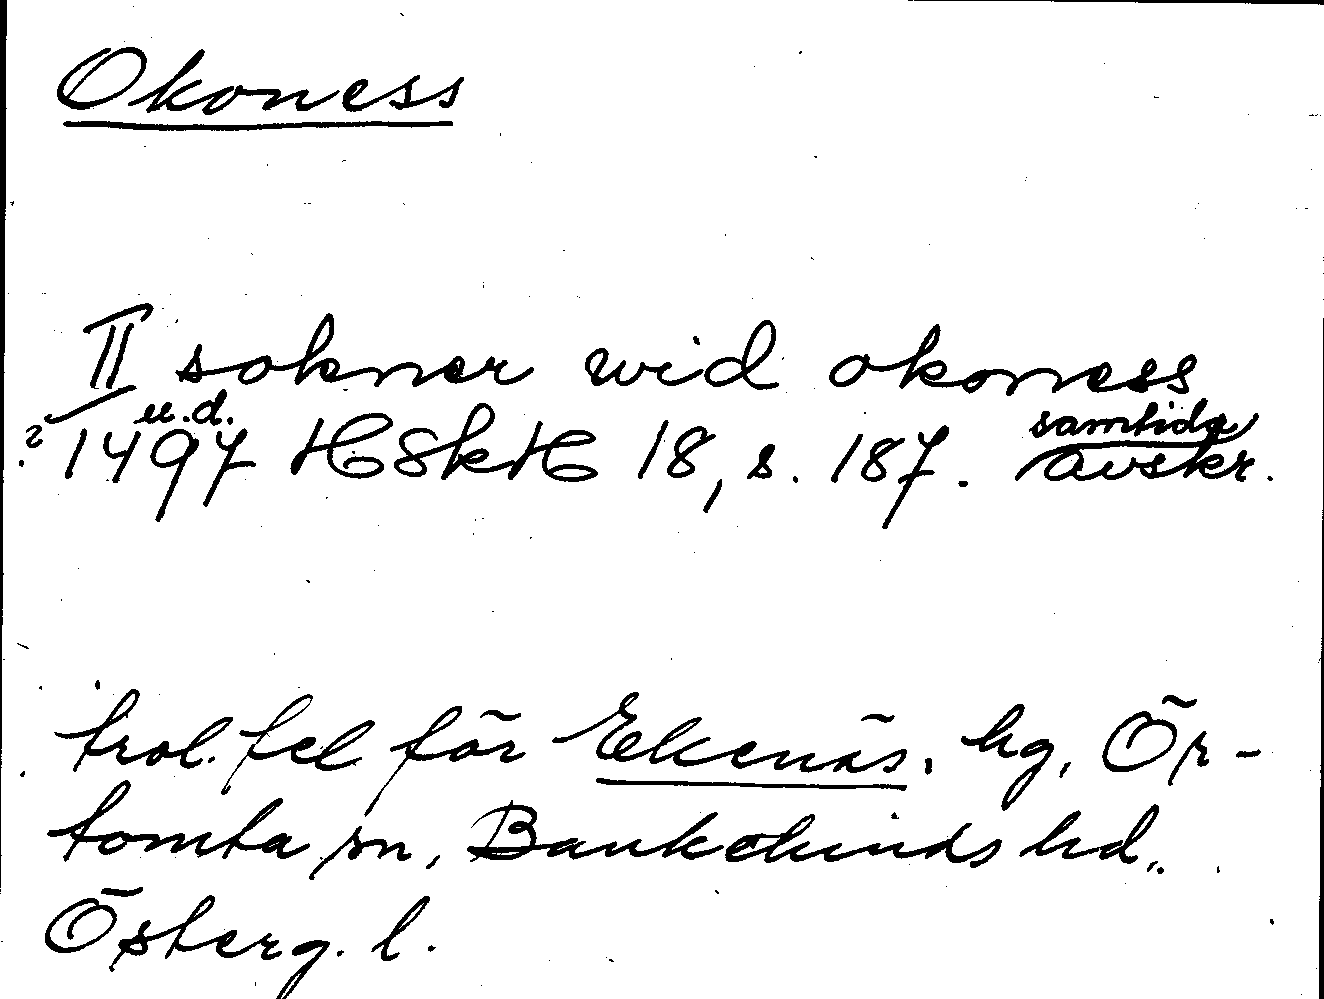 Okoness
II sokner wid okoness
u.d. samtida
? 1497 HSkH 18, s. 187. avskr.
trol. fel för Ekenäs, hg, Ör-
tomta sn, Bankekinds hd,
Österg. l.